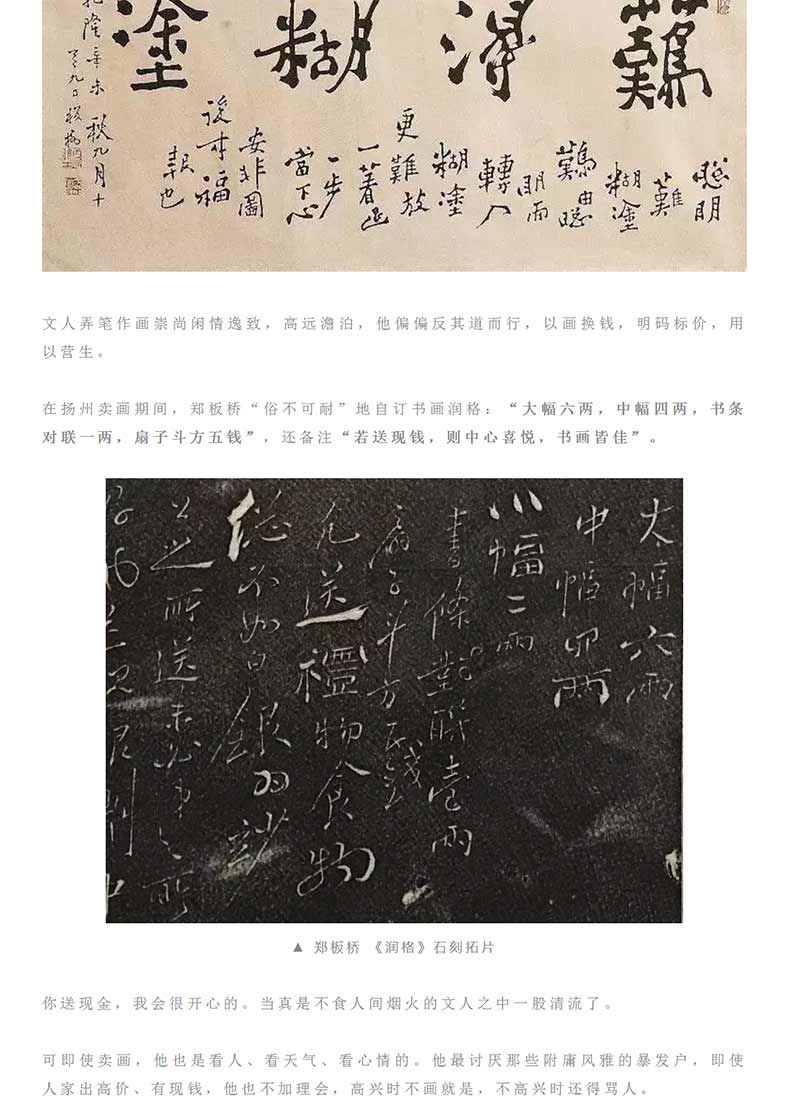 難得糊塗
聰明
難
糊塗
難由聰
明而
轉入
糊塗
更難放
一著退
一步
當下心
安非圖
後來福
報也
乾隆辛未秋九月十
有九日板橋
文人弄笔作画崇尚闲情逸致，高远澹泊，他偏偏反其道而行，以画换钱，明码标价，用
以营生。
在扬州卖画期间，郑板桥“俗不可耐”地自订书画润格：“大幅六两，中幅四两，书条
对联一两，扇子斗方五钱”，还备注“若送现钱，则中心喜悦，书画皆佳”。
大幅六兩
中幅四兩
小幅二兩
書條對聯壹兩
扇子斗方五錢
凡送禮物食物
總不如白銀為妙
公之所送未必弟之所
▲ 郑板桥 《润格》石刻拓片
你送现金，我会很开心的。当真是不食人间烟火的文人之中一股清流了。
可即使卖画，他也是看人、看天气、看心情的。他最讨厌那些附庸风雅的暴发户，即使
人家出高价、有现钱，他也不加理会，高兴时不画就是，不高兴时还得骂人。